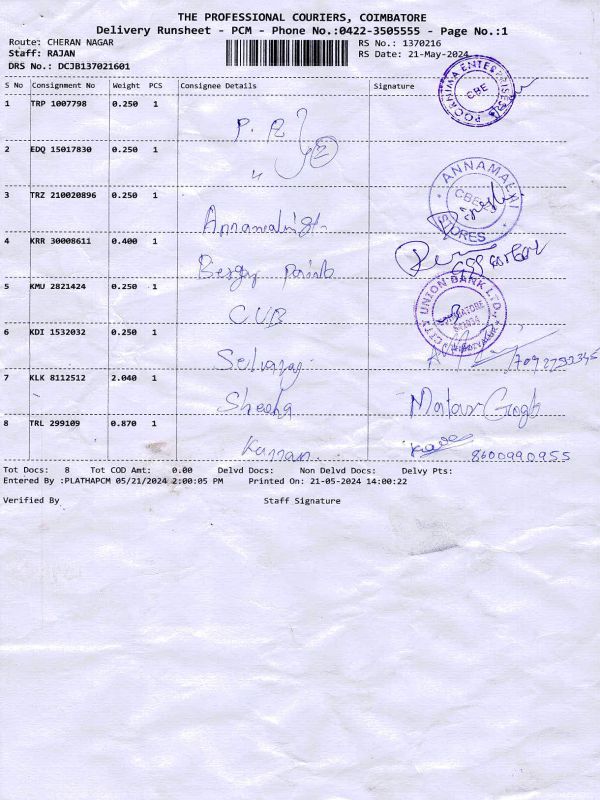 THE PROFESSIONAL COURIERS, COIMBATORE
Delivery Runsheet - PCM - Phone No.:0422-3505555 - Page No.:1
Route: CHERAN NAGAR RS No.: 1370216
Staff: RAJAN RS Date: 21-May-2024
DRS No.: DCJB137021601
S No Consignment No Weight PCS Consignee Details Signature
POORNIMA ENTERPRISES CBE
1 TRP 1007798 0.250 1
P.
2 EDQ 15017830 0.250 1
"
ANNAMALAI STORES CBE
3 TRZ 210020896 0.250 1
4 KRR 30008611 0.400 1
5 KMU 2821424 0.250 1
CUB
CITY UNION BANK LTD., COIMBATORE
6 KDI 1532032 0.250 1
Selvaraj
7 KLK 8112512 2.040 1
8 TRL 299109 0.870 1
Kannan. 8600990955
Tot Docs: 8 Tot COD Amt: 0.00 Delvd Docs: Non Delvd Docs: Delvy Pts:
Entered By :PLATHAPCM 05/21/2024 2:00:05 PM Printed On: 21-05-2024 14:00:22
Verified By Staff Signature